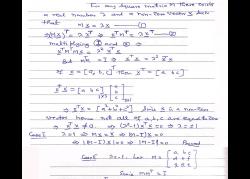 For any square matrix M there exists
a real number λ and a non-zero vector X such
that MX = λX — ①
(MX)ᵀ = λXᵀ ⇒ XᵀMᵀ = λXᵀ — ②
multiplying ① and ②
XᵀMᵀMX = λ²XᵀX
But MᵀM = I ⇒ XᵀX = λ²XᵀX
If X = [a, b, c]ᵀ then Xᵀ = [a b c]
XᵀX = [a b c] [a b c]
⇒ XᵀX = [a²+b²+c²] since X is a non-zero
vector hence not all of a, b, c are equal to zero
⇒ XᵀX ≠ 0. ⇒ (λ²-1)XᵀX = 0 ⇒ λ = ±1
Case I λ=1 ⇒ MX = X ⇒ (M-I)X = 0
⇒ |M-I||X| = 0 ⇒ |M-I| = 0 Proved
Case II λ=-1. Let M =
Since MMᵀ = I